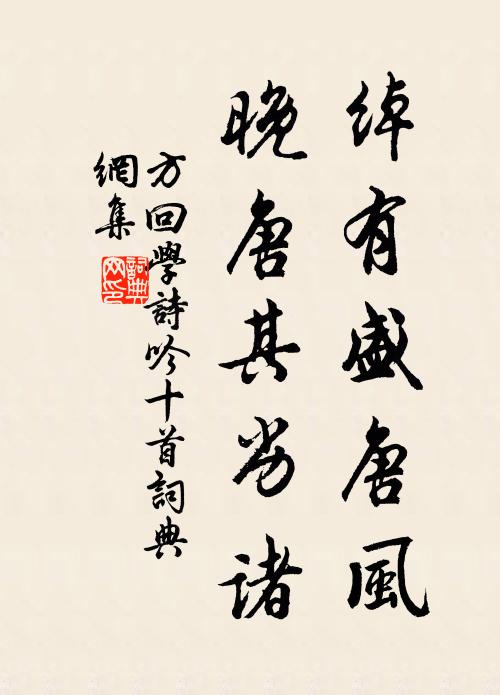 綽有盛唐風
晚唐其劣諸
方回學詩吟十首詞典
網集
詞典網印